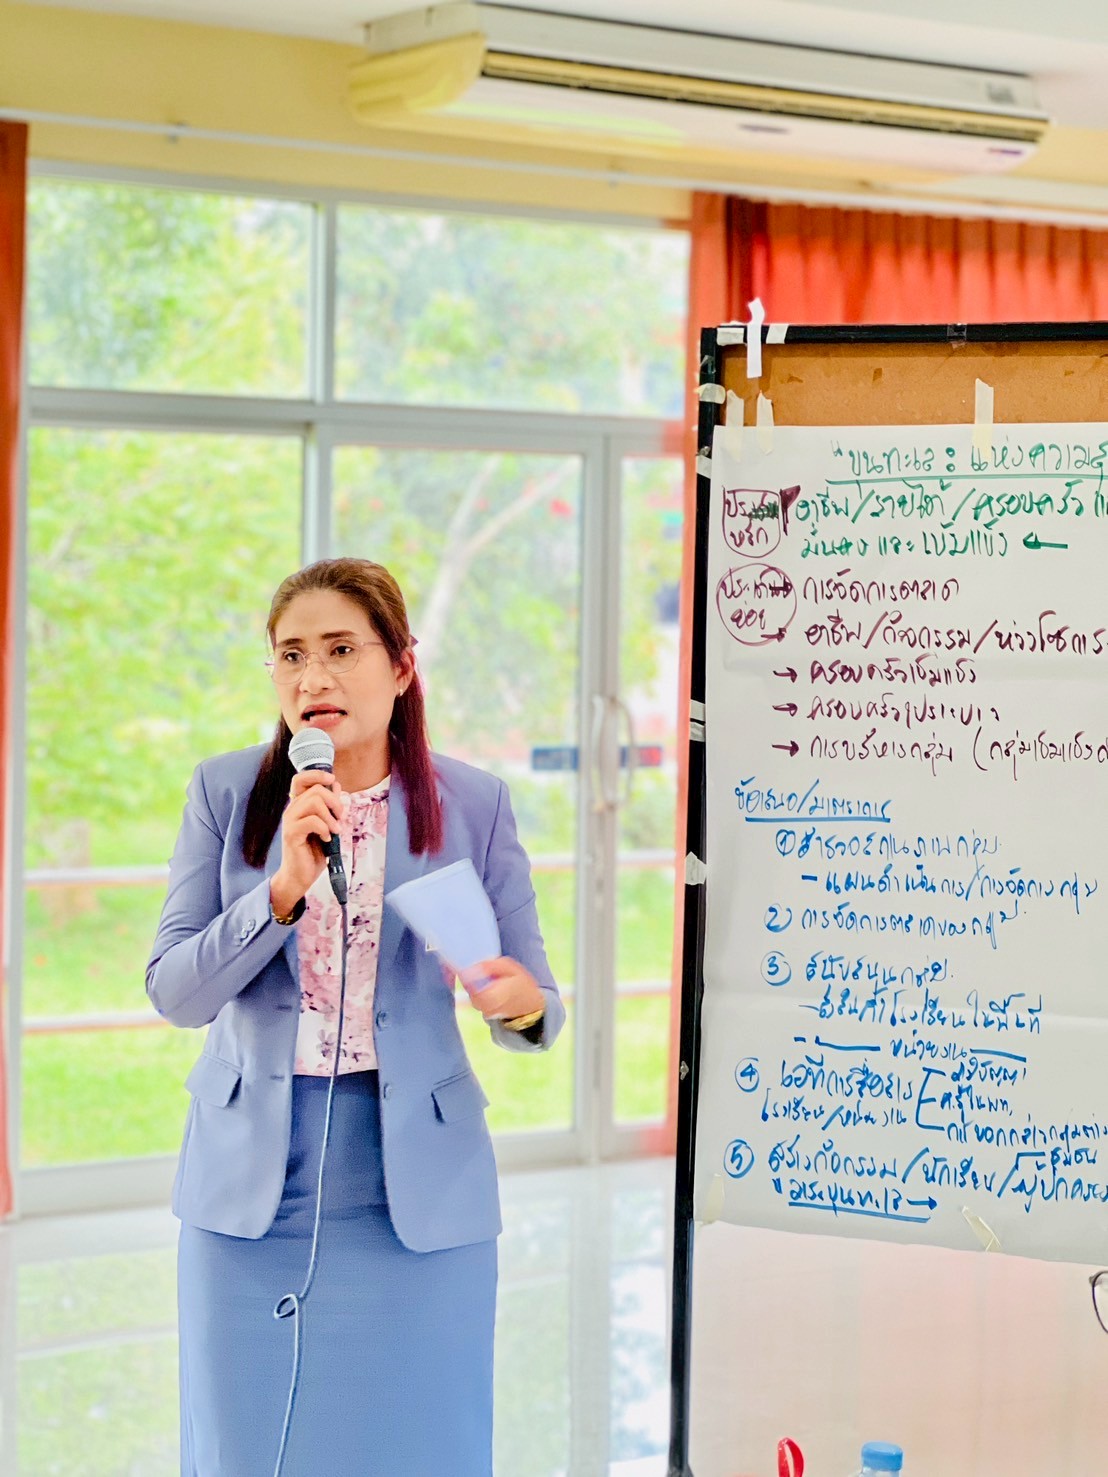 "ขุนทะเล : แห่งความสุ
ประเด็นหลัก อาชีพ/รายได้/ครอบครัว
มั่นคง และ เข้มแข็ง
ประเด็นย่อย → การจัดการตลาด
→ อาชีพ/กิจกรรม/ห่วงโซ่การ
→ ครอบครัวเข้มแข็ง
→ ครอบครัวเปราะบาง
→ การบริหารกลุ่ม (กลุ่มเข้มแข็ง
ข้อเสนอ/มาตรการ
① สำรวจสถานภาพกลุ่ม
- แผนดำเนินการ/การจัดการกลุ่ม
② การจัดการตลาดของกลุ่ม
③ สนับสนุนกลุ่ม
โรงเรียนในพื้นที่
หน่วยงาน
④ เวทีการสื่อสาร
โรงเรียน/หน่วยงาน
⑤ สร้างกิจกรรม/นักเรียน/ผู้ปกครอง
ชุมชน